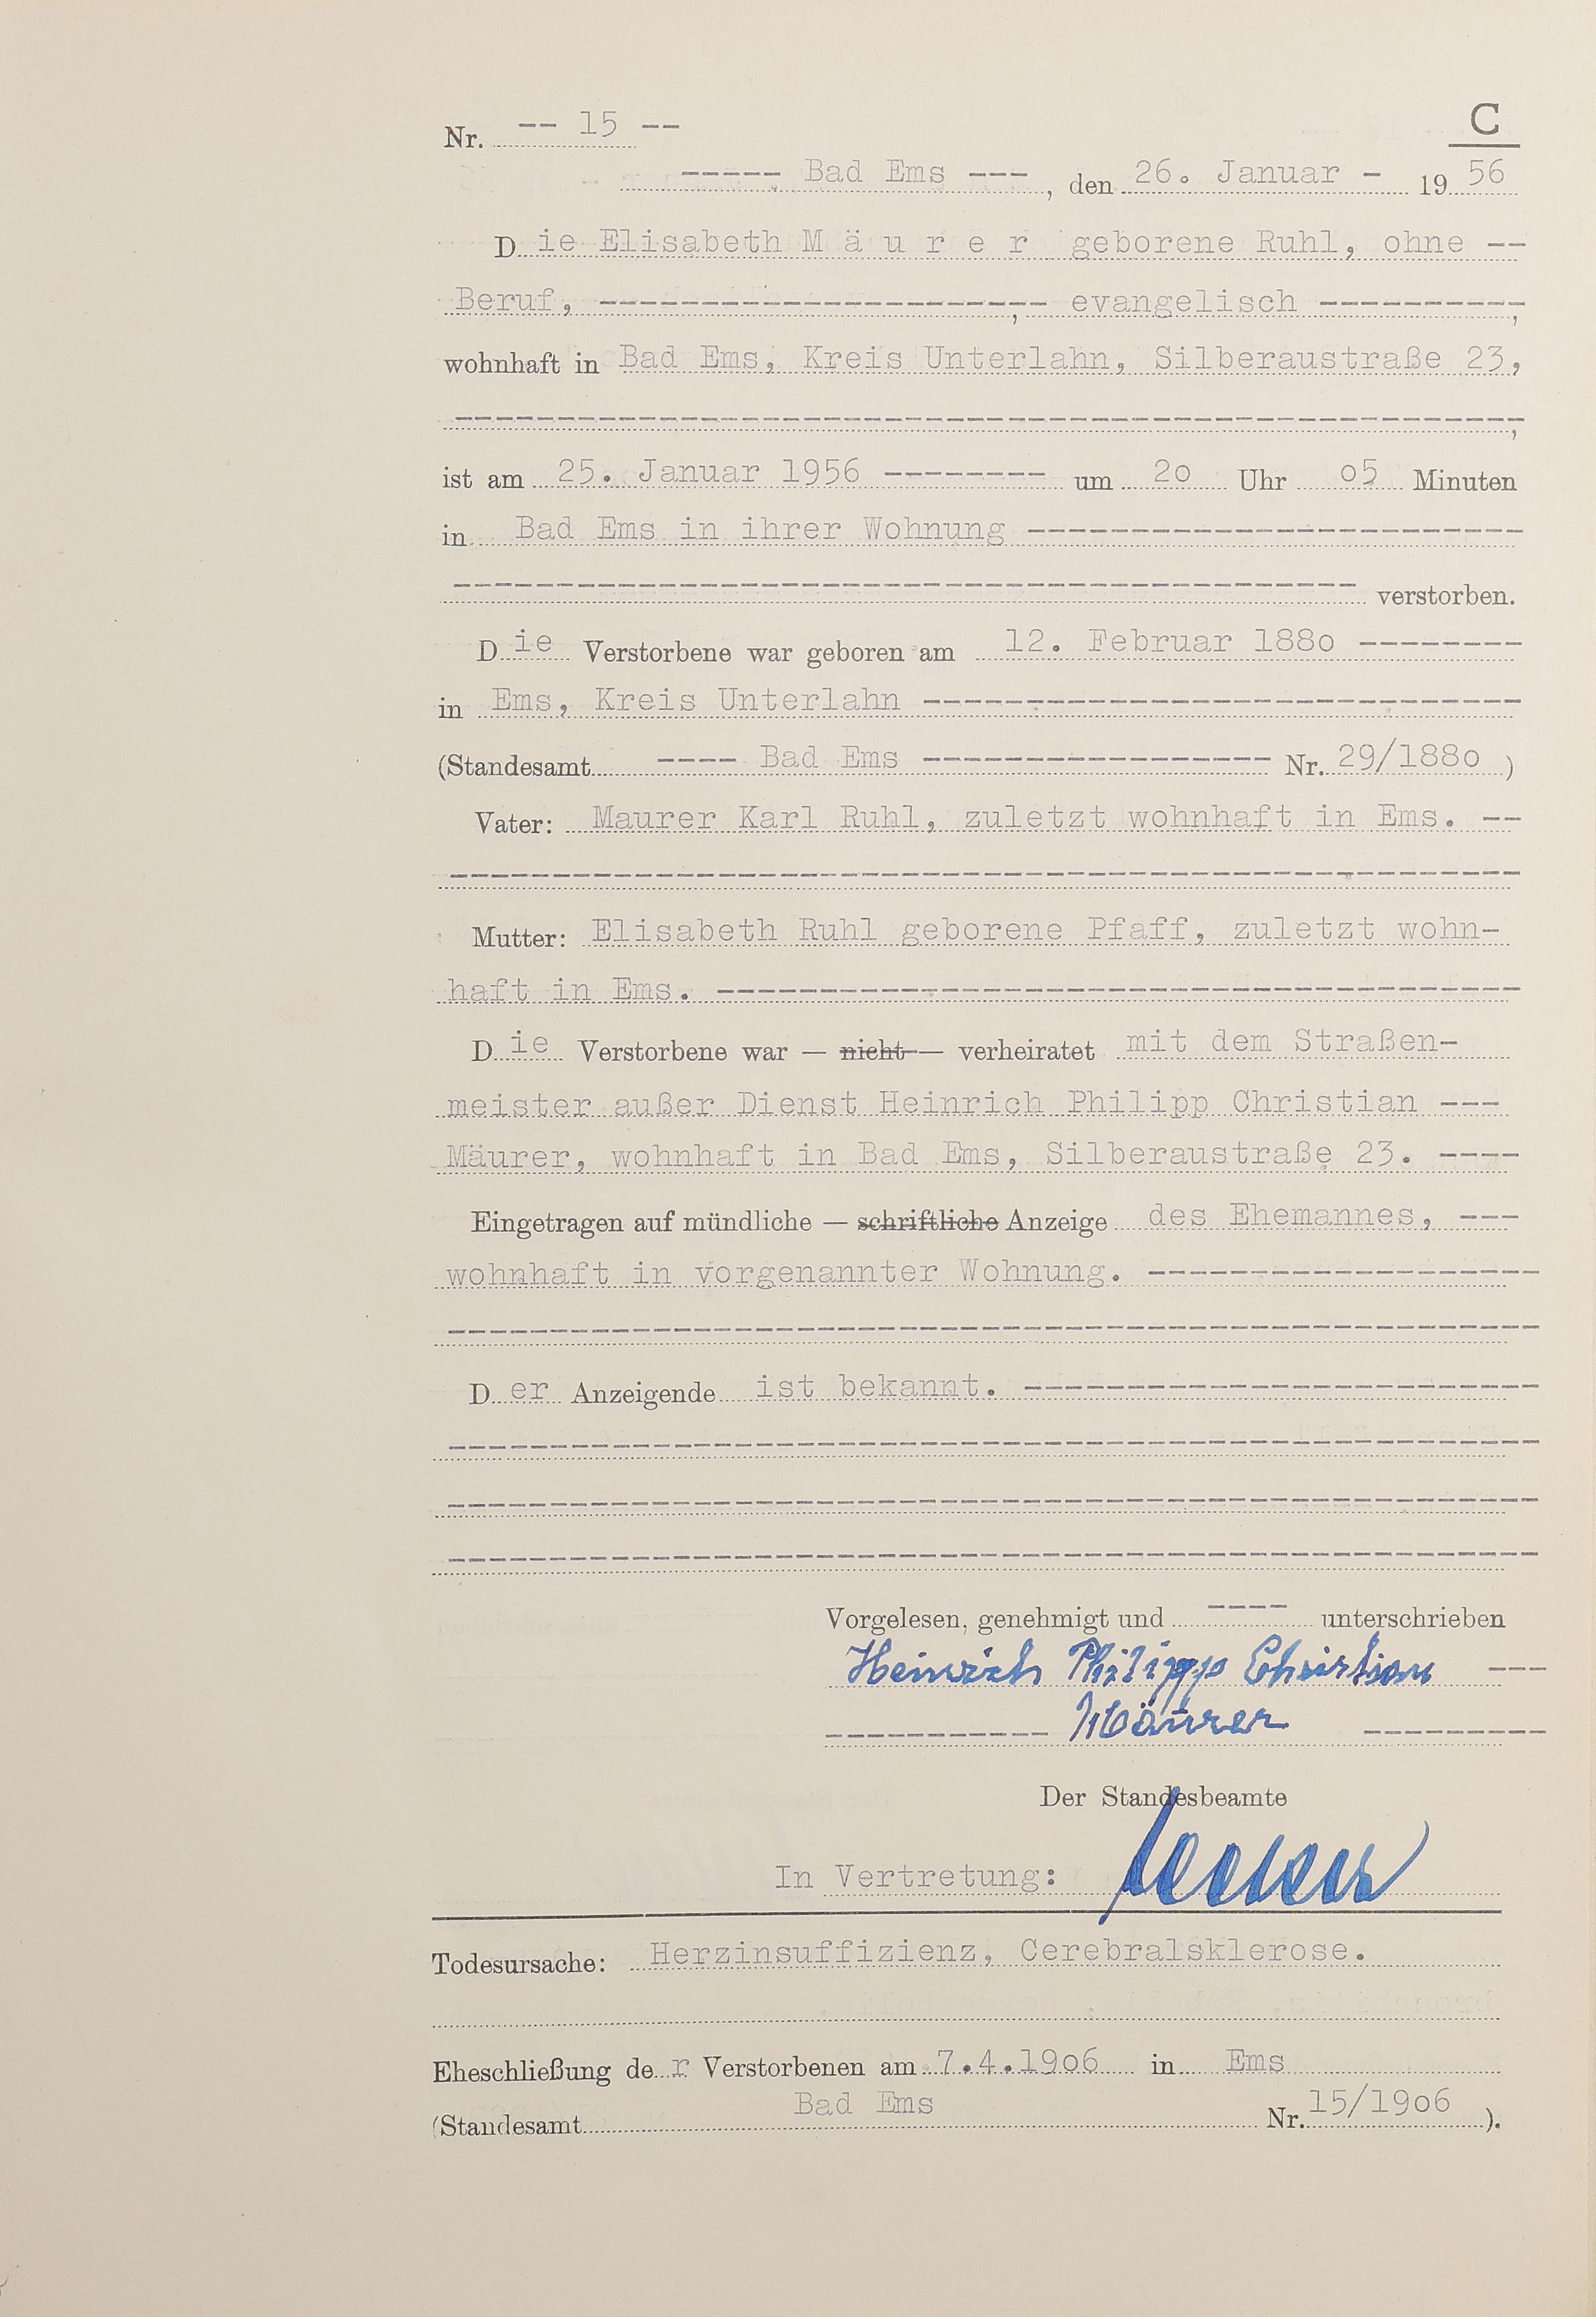 Nr. -- 15 --
C
----- Bad Ems ---, den 26. Januar - 19 56
Die Elisabeth M ä u r e r geborene Ruhl, ohne --
Beruf, --------------------,-- evangelisch ----------,
wohnhaft in Bad Ems, Kreis Unterlahn, Silberaustraße 23,
----------------------------------------------------,
ist am 25. Januar 1956 -------- um 2o Uhr o5 Minuten
in Bad Ems in ihrer Wohnung ------------------------
-------------------------------------------- verstorben.
Die Verstorbene war geboren am 12. Februar 188o --------
in Ems, Kreis Unterlahn -----------------------------
(Standesamt ---- Bad Ems ----------------- Nr. 29/188o )
Vater: Maurer Karl Ruhl, zuletzt wohnhaft in Ems. --
----------------------------------------------------
Mutter: Elisabeth Ruhl geborene Pfaff, zuletzt wohn-
haft in Ems. ---------------------------------------
Die Verstorbene war — nicht — verheiratet mit dem Straßen-
meister außer Dienst Heinrich Philipp Christian ---
Mäurer, wohnhaft in Bad Ems, Silberaustraße 23. ----
Eingetragen auf mündliche — schriftliche Anzeige des Ehemannes, ---
wohnhaft in vorgenannter Wohnung. -------------------
-----------------------------------------------------
Der Anzeigende ist bekannt. -------------------------
-----------------------------------------------------
-----------------------------------------------------
-----------------------------------------------------
Vorgelesen, genehmigt und ---- unterschrieben
Heinrich Philipp Christian ---
----------- Mäurer ---------
Der Standesbeamte
In Vertretung:
Todesursache: Herzinsuffizienz, Cerebralsklerose.
Eheschließung der Verstorbenen am 7.4.19o6 in Ems
(Standesamt Bad Ems Nr. 15/19o6 ).